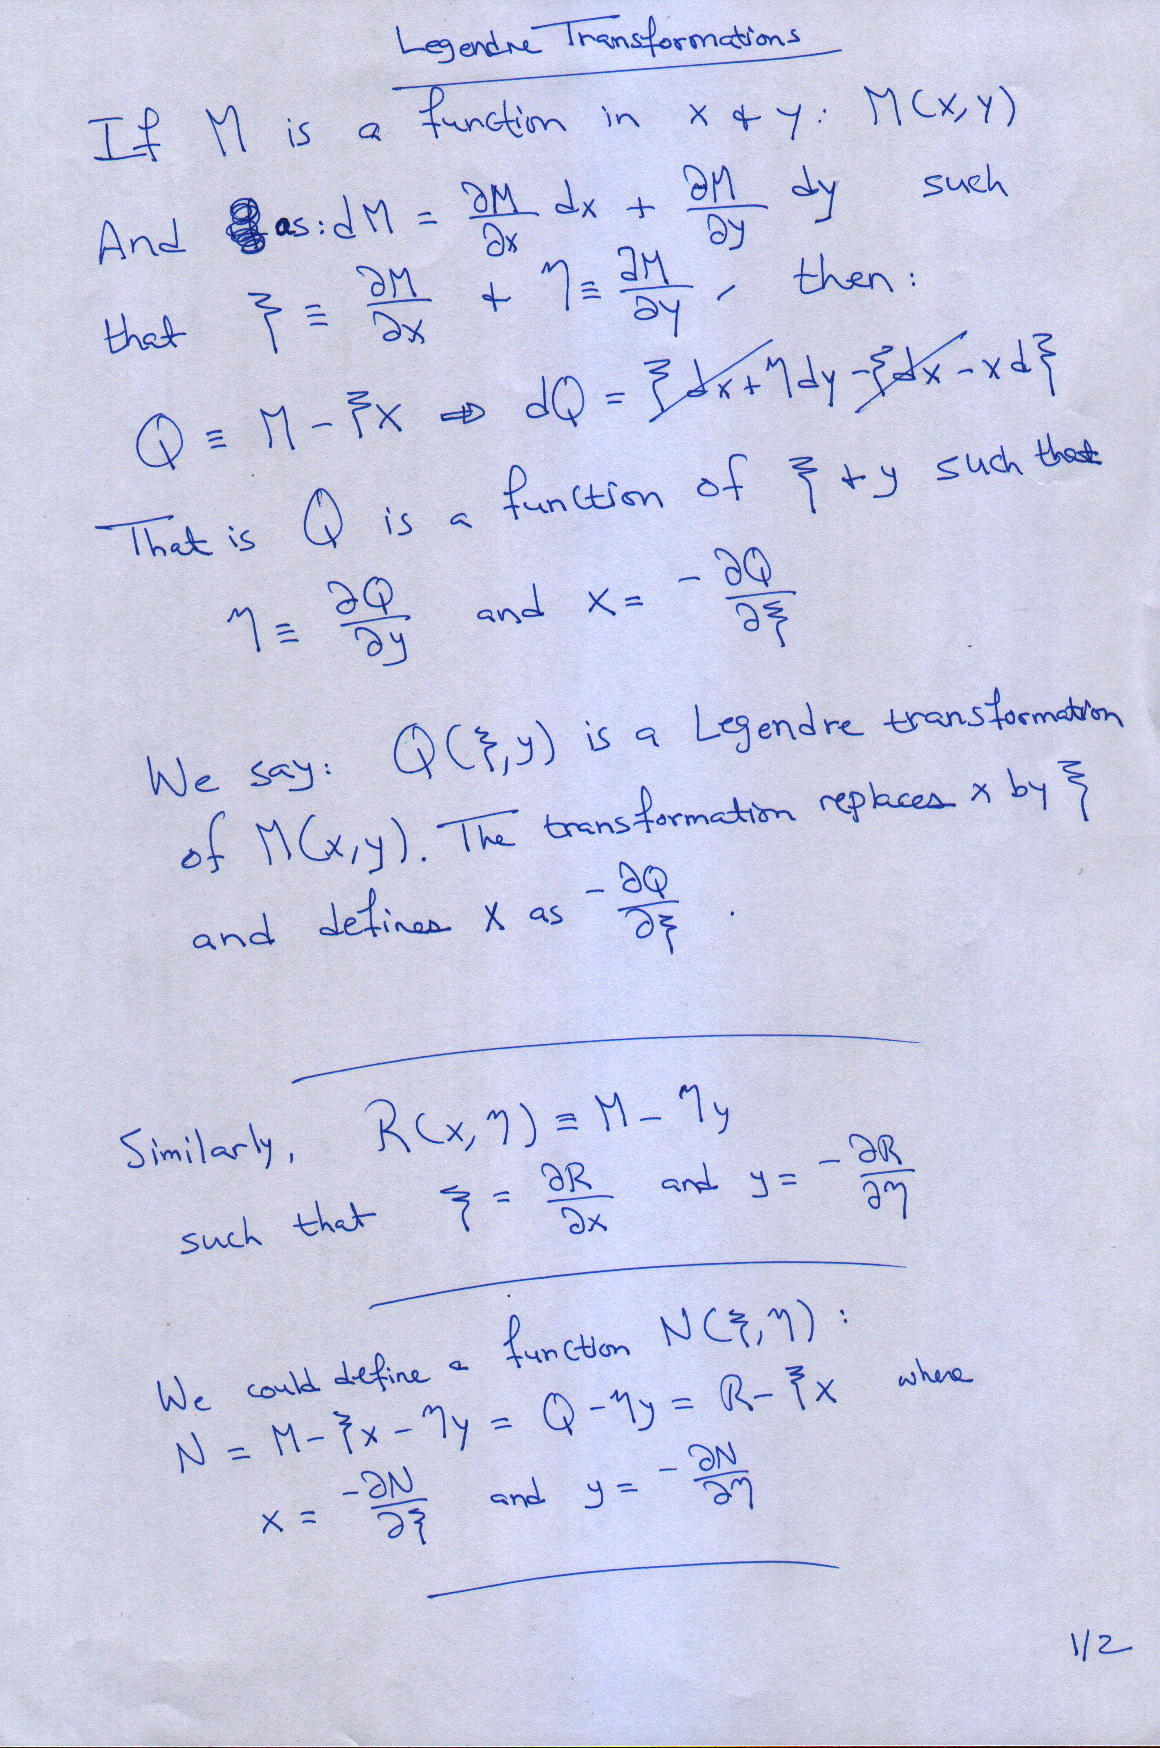 Legendre Transformations
If M is a function in x & y: M(x,y)
And as: dM = ∂M/∂x dx + ∂M/∂y dy such
that ξ ≡ ∂M/∂x & η ≡ ∂M/∂y, then:
Q ≡ M - ξx ⇒ dQ = ξdx + ηdy - ξdx - xdξ
That is Q is a function of ξ & y such that
η ≡ ∂Q/∂y and x = -∂Q/∂ξ
We say: Q(ξ,y) is a Legendre transformation
of M(x,y). The transformation replaces x by ξ
and defines x as -∂Q/∂ξ.
Similarly, R(x,η) ≡ M - ηy
such that ξ = ∂R/∂x and y = -∂R/∂η
We could define a function N(ξ,η):
N = M - ξx - ηy = Q - ηy = R - ξx where
x = -∂N/∂ξ and y = -∂N/∂η
1/2